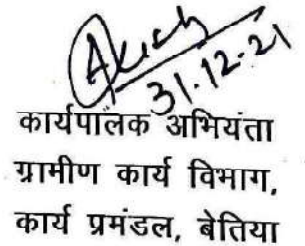 31.12.21
कार्यपालक अभियंता
ग्रामीण कार्य विभाग,
कार्य प्रमंडल, बेतिया